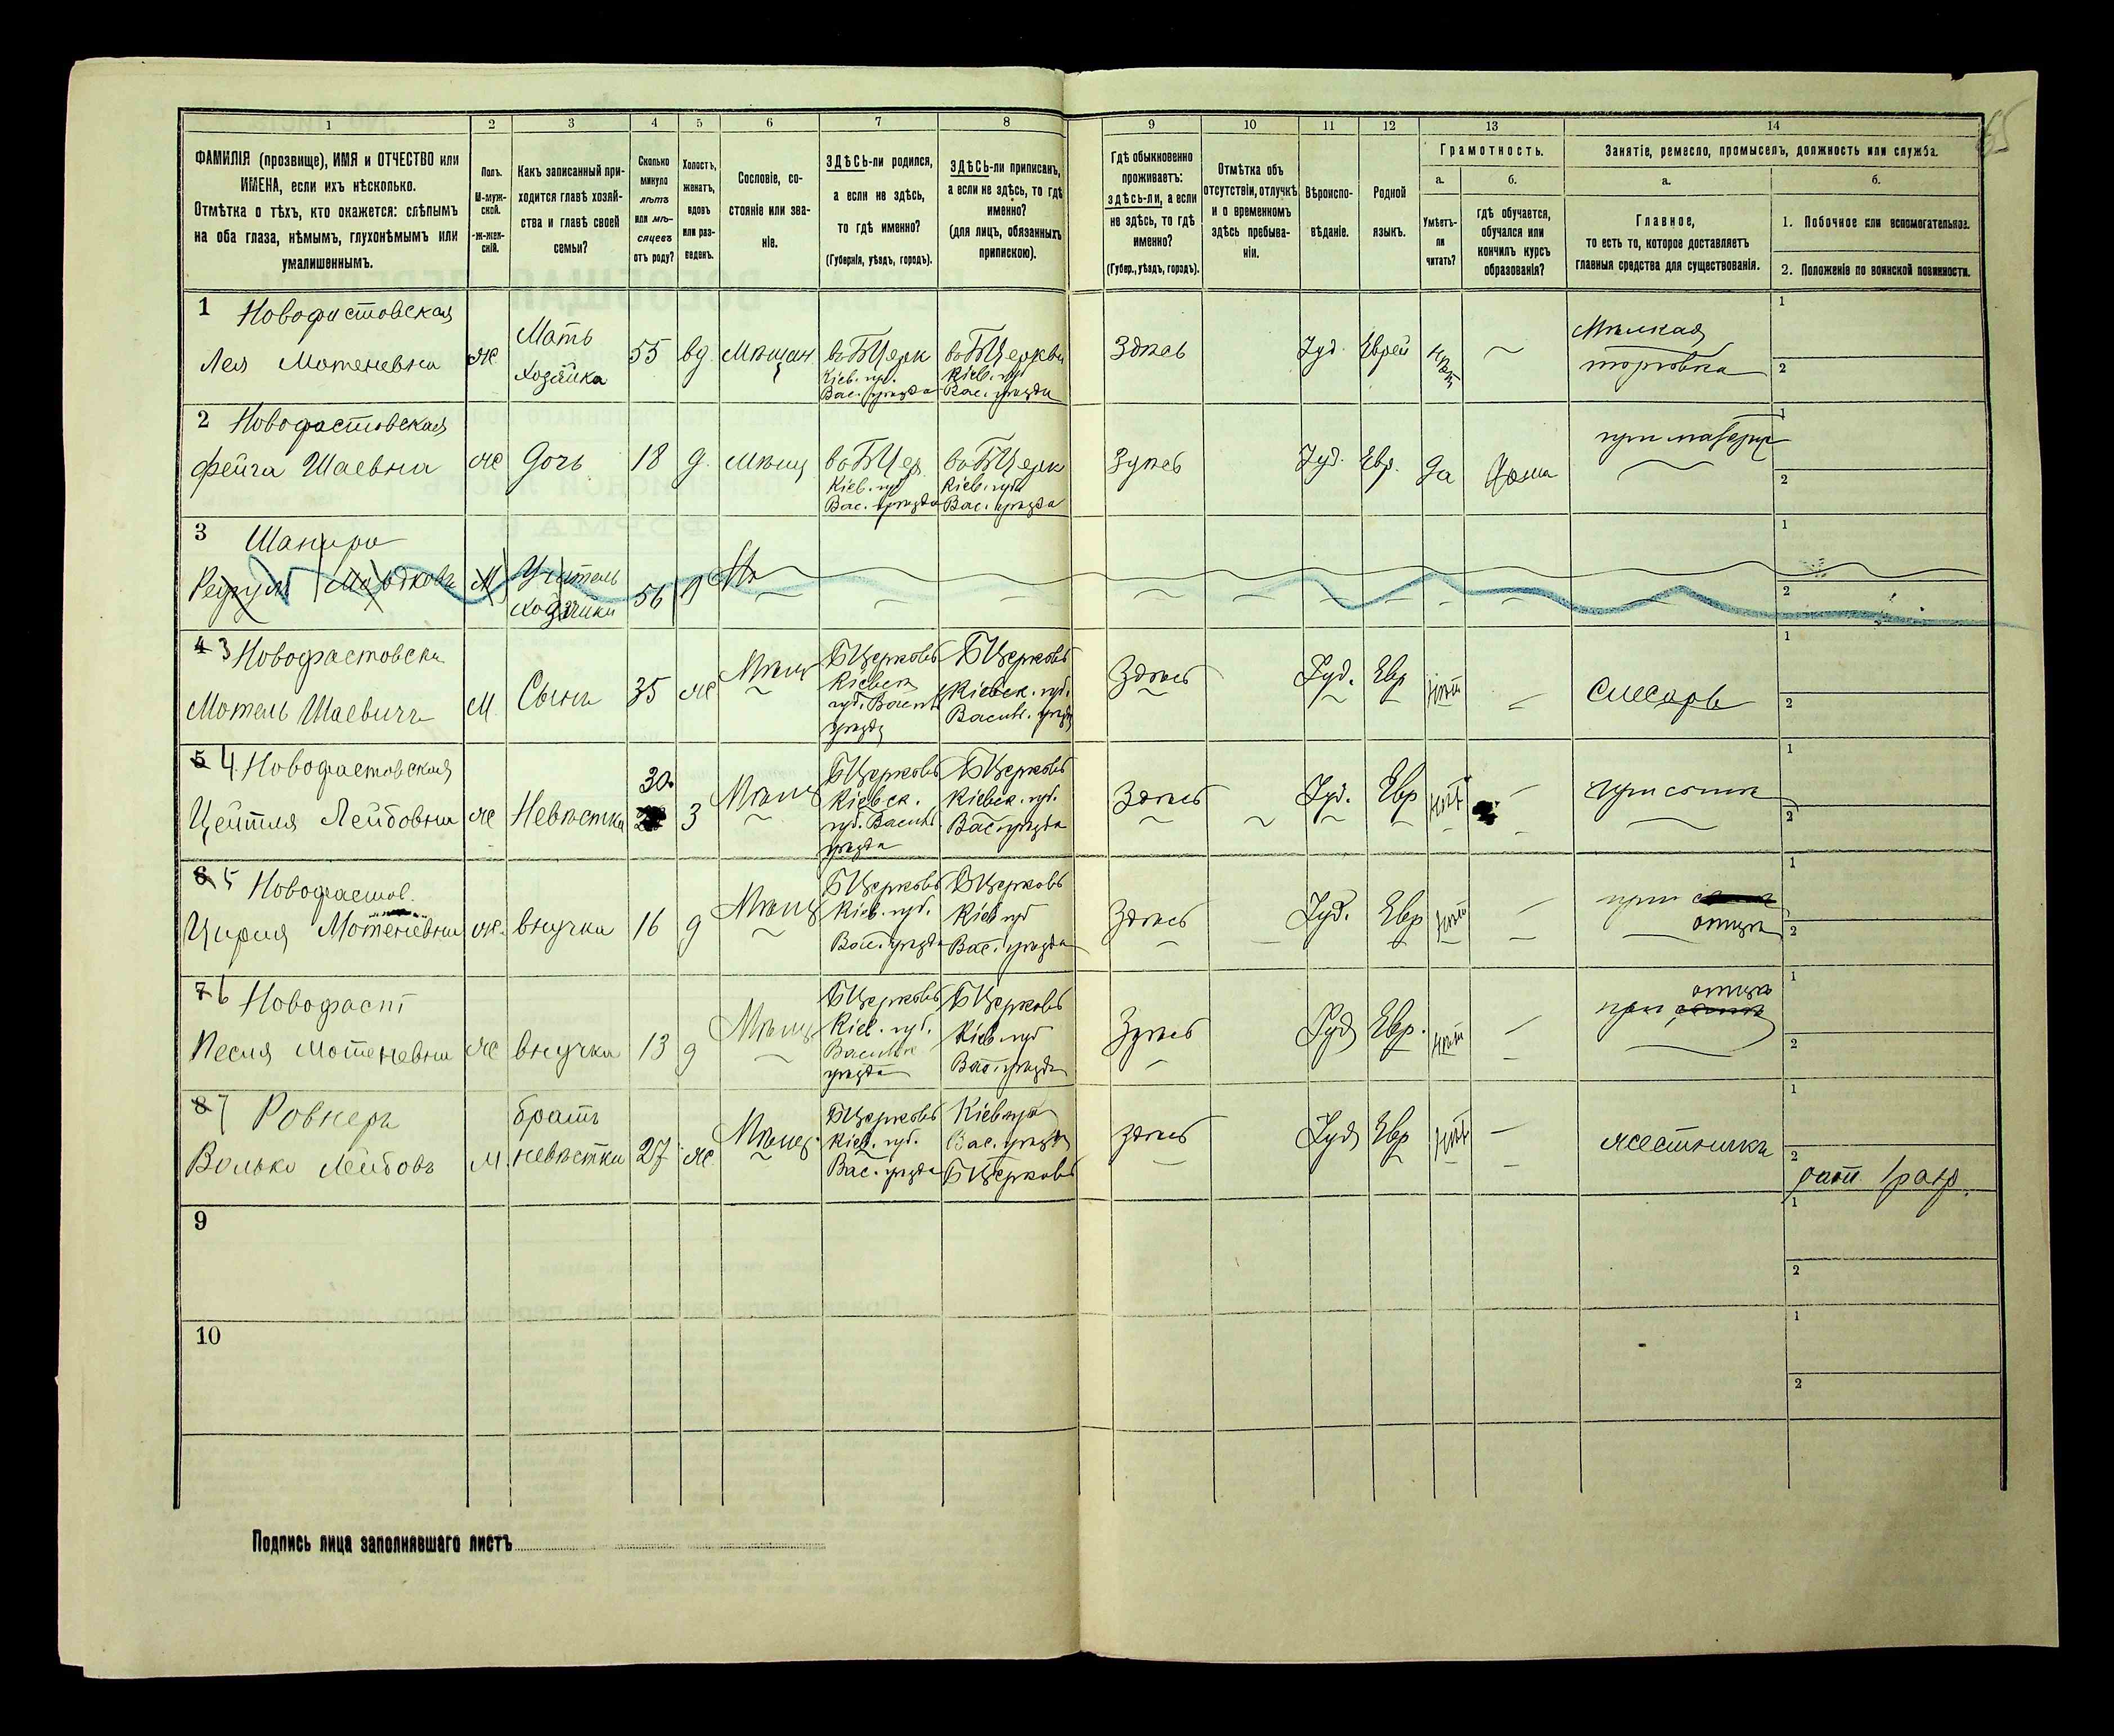 65
1 2 3 4 5 6 7 8 9 10 11 12 13 14
ФАМИЛІЯ (прозвище), ИМЯ и ОТЧЕСТВО или
ИМЕНА, если ихъ нѣсколько.
Отмѣтка о тѣхъ, кто окажется: слѣпымъ
на оба глаза, нѣмымъ, глухонѣмымъ или
умалишеннымъ.
Полъ.
М-муж-
ской.
Ж-жен-
скій.
Какъ записанный при-
ходится главѣ хозяй-
ства и главѣ своей
семьи?
Сколько
минуло
лѣтъ
или мѣ-
сяцевъ
отъ роду?
Холостъ,
женатъ,
вдовъ
или раз-
веденъ.
Сословіе, со-
стояніе или зва-
ніе.
ЗДѢСЬ-ли родился,
а если не здѣсь,
то гдѣ именно?
(Губернія, уѣздъ, городъ).
ЗДѢСЬ-ли приписанъ,
а если не здѣсь, то гдѣ
именно?
(для лицъ, обязанныхъ
припискою).
Гдѣ обыкновенно
проживаетъ:
здѣсь-ли, а если
не здѣсь, то гдѣ
именно?
(Губер., уѣздъ, городъ).
Отмѣтка объ
отсутствіи, отлучкѣ
и о временномъ
здѣсь пребыва-
ніи.
Вѣроиспо-
вѣданіе.
Родной
языкъ.
Грамотность.
а.
Умѣетъ-
ли
читать?
б.
гдѣ обучается,
обучался или
кончилъ курсъ
образованія?
Занятіе, ремесло, промыселъ, должность или служба.
а.
Главное,
то есть то, которое доставляетъ
главныя средства для существованія.
б.
1. Побочное или вспомогательное.
2. Положеніе по воинской повинности.
1 Новофастовская
Лея Мотеневна
ж
Мать
Хозяйка
55
вд.
Мѣщан
въ БЦерк
Кіев. губ.
Вас. уѣзда
въ БЦеркви
Кіев. губ
Вас. уѣзда
Здѣсь
Іуд.
Еврей
нѣт
Мѣлкая
торговка
1
2
2 Новофастовская
Фейга Шаевна
ж
дочь
18
д.
мѣщ
въ БЦер.
Кіев. губ
Вас. уѣзда
въ БЦерк
Кіев. губ
Вас. уѣзда
Здѣсь
Іуд.
Евр.
да
дома
при матери
1
2
3 Шапиро
М
Учитель
хозяйки
56
1
2
4 3 Новофастовски
Мотель Шаевичъ
М
Сынъ
35
ж
Мѣщ
БЦерковь
Кіевск
губ. Васильк
уѣзда
БЦерковь
Кіевск. губ.
Васильк. уѣзда
Здѣсь
Іуд.
Евр
нѣт
Слесарь
1
2
5 4 Новофастовская
Цейтля Лейбовна
ж
Невѣстка
30
З
Мѣщ
БЦерковь
Кіевск.
губ. Васильк.
уѣзда
БЦерковь
Кіевск. губ.
Вас. уѣзда
Здѣсь
Іуд.
Евр
нѣт
1
2
6 5 Новофастов.
Цирля Мотеневна
ж.
внучка
16
д
Мѣщ
БЦерковь
Кіев. губ.
Вас. уѣзда
БЦерковь
Кіев губ
Вас. уѣзда
Здѣсь
Іуд.
Евр
нѣт
при
отцѣ
1
2
7 6 Новофаст
Песия Мотеневна
ж
внучка
13
д
Мѣщ
БЦерковь
Кіев. губ.
Васильк
уѣзда
БЦерковь
Кіев губ
Вас. уѣзда
Здѣсь
Іуд
Евр.
нѣт
отцѣ
при
1
2
8 7 Ровнеръ
Волько Лейбовъ
М.
братъ
невѣстки
27
ж
Мѣщ.
БЦерковь
Кіев. губ.
Вас. уѣзда
Кіев губ
Вас. уѣзда
БЦерковь
здѣсь
Іуд
Евр
нѣт
жестяникъ
1
2
рат. 1 раз.
9
1
2
10
1
2
Подпись лица заполнявшаго листъ